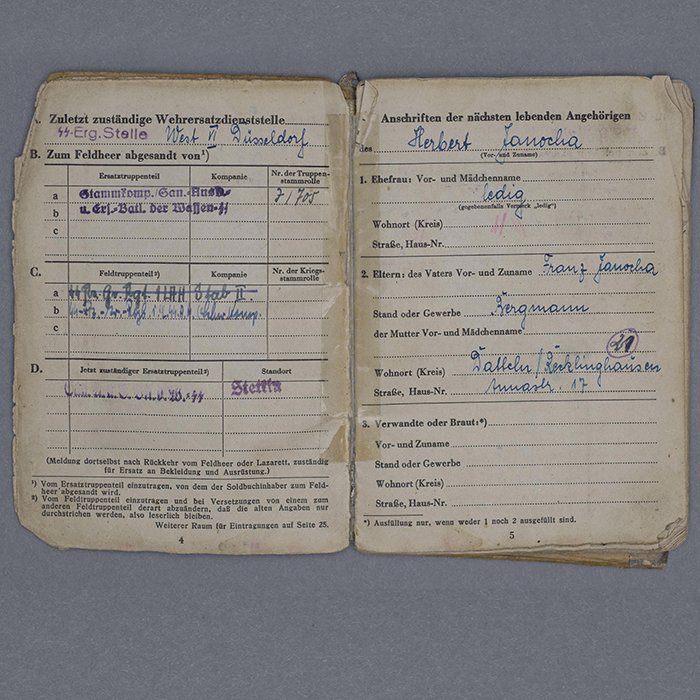 A. Zuletzt zuständige Wehrersatzdienststelle
SS-Erg. Stelle West VI Düsseldorf
B. Zum Feldheer abgesandt von¹)
Ersatztruppenteil Kompanie Nr. der Truppen-
stammrolle
a Stammkomp./San.-Ausb.- 7/705
b u. Ers.-Batl. der Waffen-SS
c
C.
Feldtruppenteil²) Kompanie Nr. der Kriegs-
stammrolle
a SS Pz. Gr. Rgt. 1 LAH Stab II.
b
c
D.
Jetzt zuständiger Ersatztruppenteil²) Standort
Stettin
(Meldung dortselbst nach Rückkehr vom Feldheer oder Lazarett, zuständig
für Ersatz an Bekleidung und Ausrüstung.)
¹) Vom Ersatztruppenteil einzutragen, von dem der Soldbuchinhaber zum Feld-
heer abgesandt wird.
²) Vom Feldtruppenteil einzutragen und bei Versetzungen von einem zum
anderen Feldtruppenteil derart abzuändern, daß die alten Angaben nur
durchstrichen werden, also leserlich bleiben.
Weiterer Raum für Eintragungen auf Seite 25.
4
Anschriften der nächsten lebenden Angehörigen
des Herbert Janocha
(Vor- und Zuname)
1. Ehefrau: Vor- und Mädchenname
ledig
(gegebenenfalls Vermerk „ledig")
Wohnort (Kreis)
Straße, Haus-Nr.
2. Eltern: des Vaters Vor- und Zuname Franz Janocha
Stand oder Gewerbe Bergmann
der Mutter Vor- und Mädchenname
21
Wohnort (Kreis) Datteln/Recklinghausen
Straße, Haus-Nr. Annastr. 17
3. Verwandte oder Braut:*)
Vor- und Zuname
Stand oder Gewerbe
Wohnort (Kreis)
Straße, Haus-Nr.
*) Ausfüllung nur, wenn weder 1 noch 2 ausgefüllt sind.
5